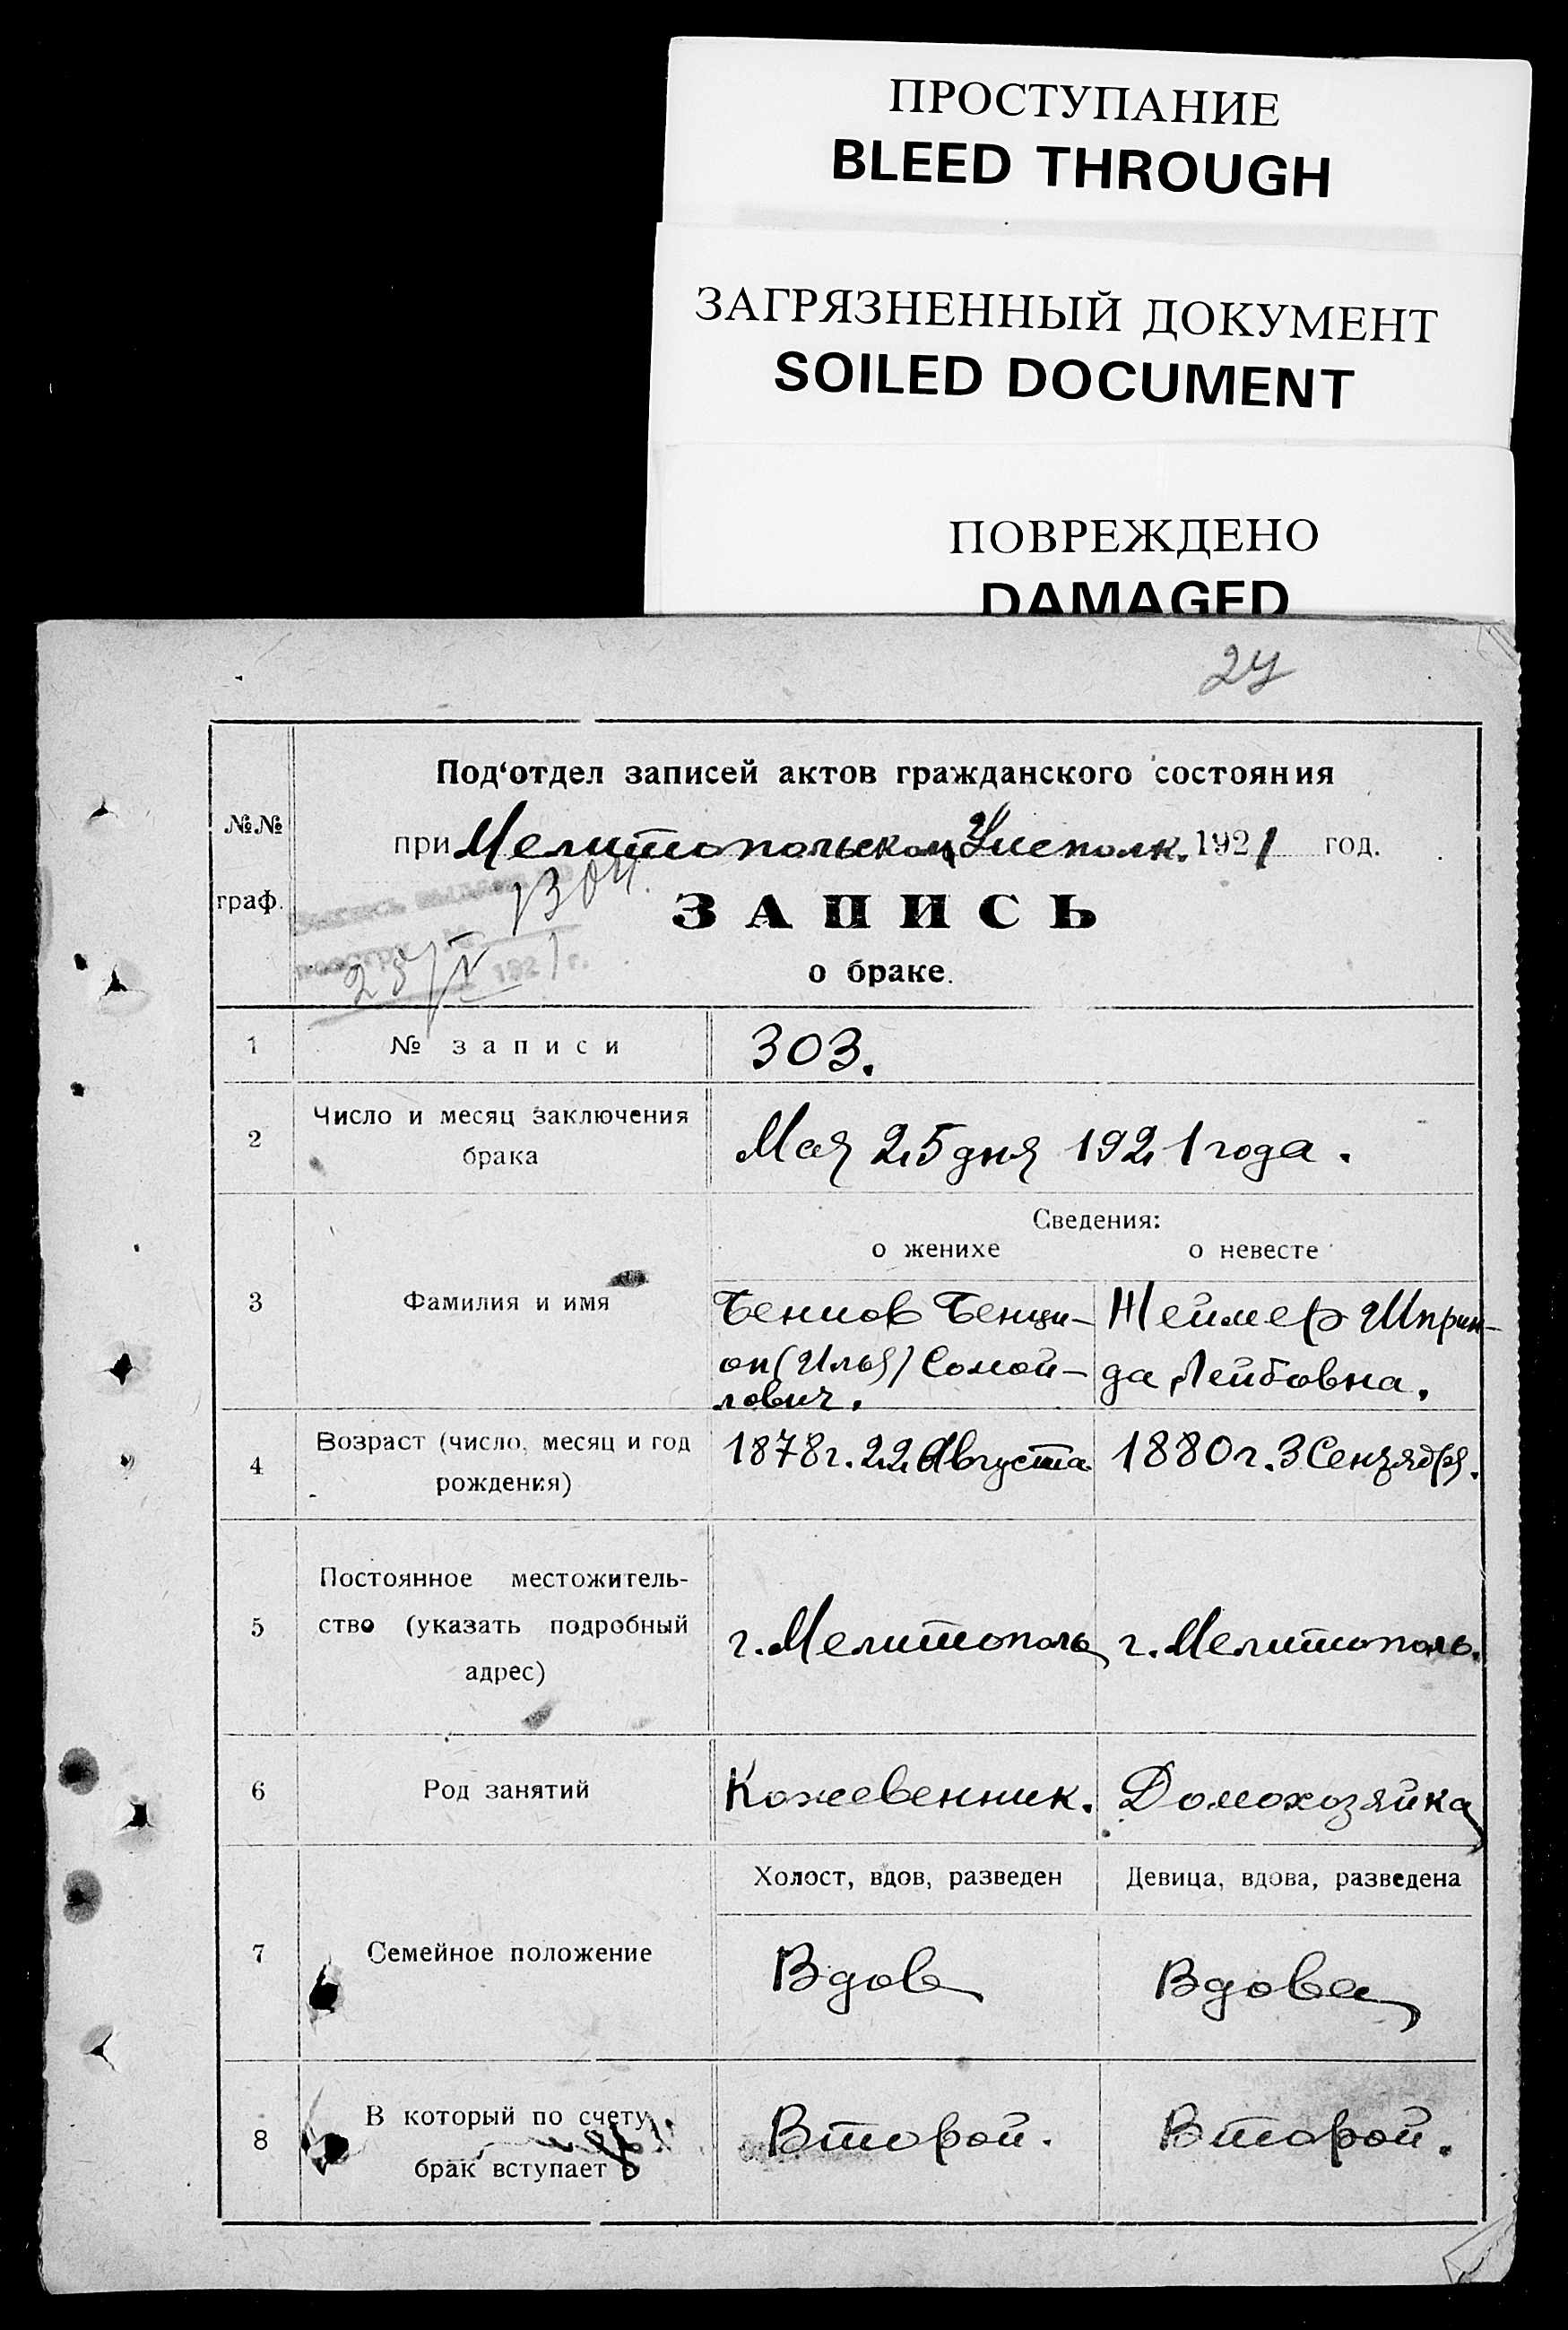 ПРОСТУПАНИЕ
BLEED THROUGH
ЗАГРЯЗНЕННЫЙ ДОКУМЕНТ
SOILED DOCUMENT
ПОВРЕЖДЕНО
DAMAGED
24
№№
граф.
Под‘отдел записей актов гражданского состояния
при Мелитопольском Уисполк. 1921 год.
ЗАПИСЬ
о браке.
192 г.
1 № записи 303.
2 Число и месяц заключения
брака
Мая 25 дня 1921 года.
Сведения:
о женихе о невесте
3 Фамилия и имя
Бенцов Бенци- Жеймер Шприн-
он (Илья) Самой- да Лейбовна.
лович.
4 Возраст (число, месяц и год
рождения)
1878 г. 22 Августа 1880 г. 3 Сентября.
5 Постоянное местожитель-
ство (указать подробный
адрес)
г. Мелитополь г. Мелитополь.
6 Род занятий Кожевенник. Домохозяйка
Холост, вдов, разведен Девица, вдова, разведена
7 Семейное положение Вдов Вдова
8 В который по счету
брак вступает
Второй. Второй.